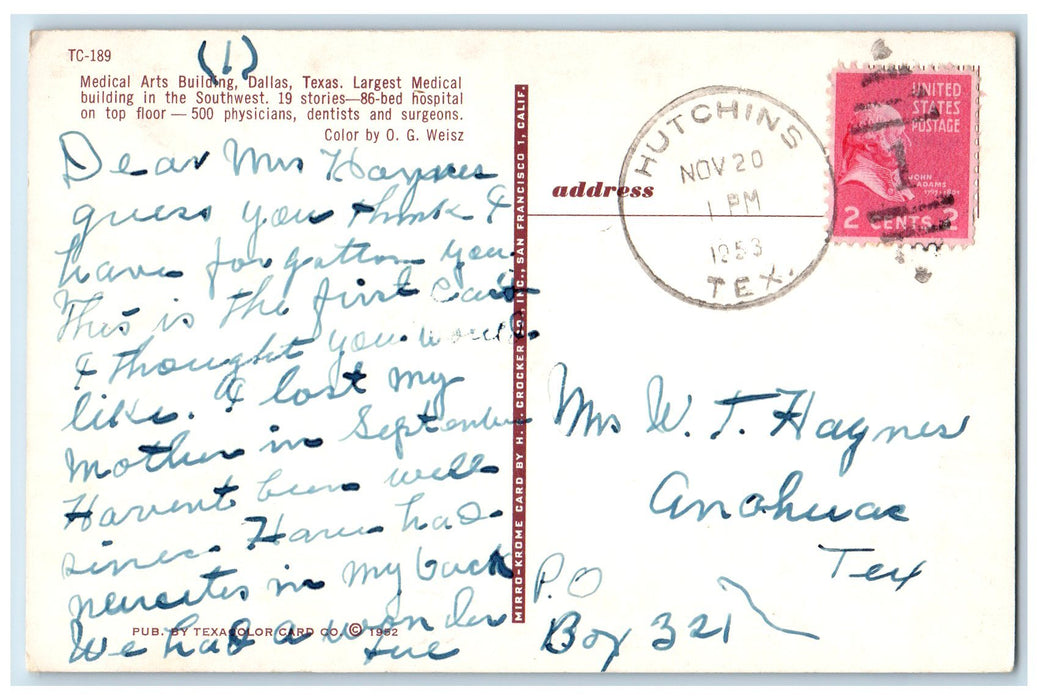 TC-189
(1)
Medical Arts Building, Dallas, Texas. Largest Medical
building in the Southwest. 19 stories—86-bed hospital
on top floor — 500 physicians, dentists and surgeons.
Color by O. G. Weisz
Dear Mrs Haynes
guess you think I
have forgotton you.
This is the first Card
I thought you would
like. I lost my
Mother in September
Havent been well
since. Have had
neurites in my back
We had a wonder
ful
PUB. BY TEXACOLOR CARD CO. © 1952
MIRRO-KROME CARD BY H. S. CROCKER CO. INC., SAN FRANCISCO 1, CALIF.
address
HUTCHINS
NOV 20
1 PM
1953
TEX.
UNITED
STATES
POSTAGE
1
JOHN
ADAMS
2 CENTS 2
Mrs W. T. Haynes
Anahuac
Tex
P.O
Box 321